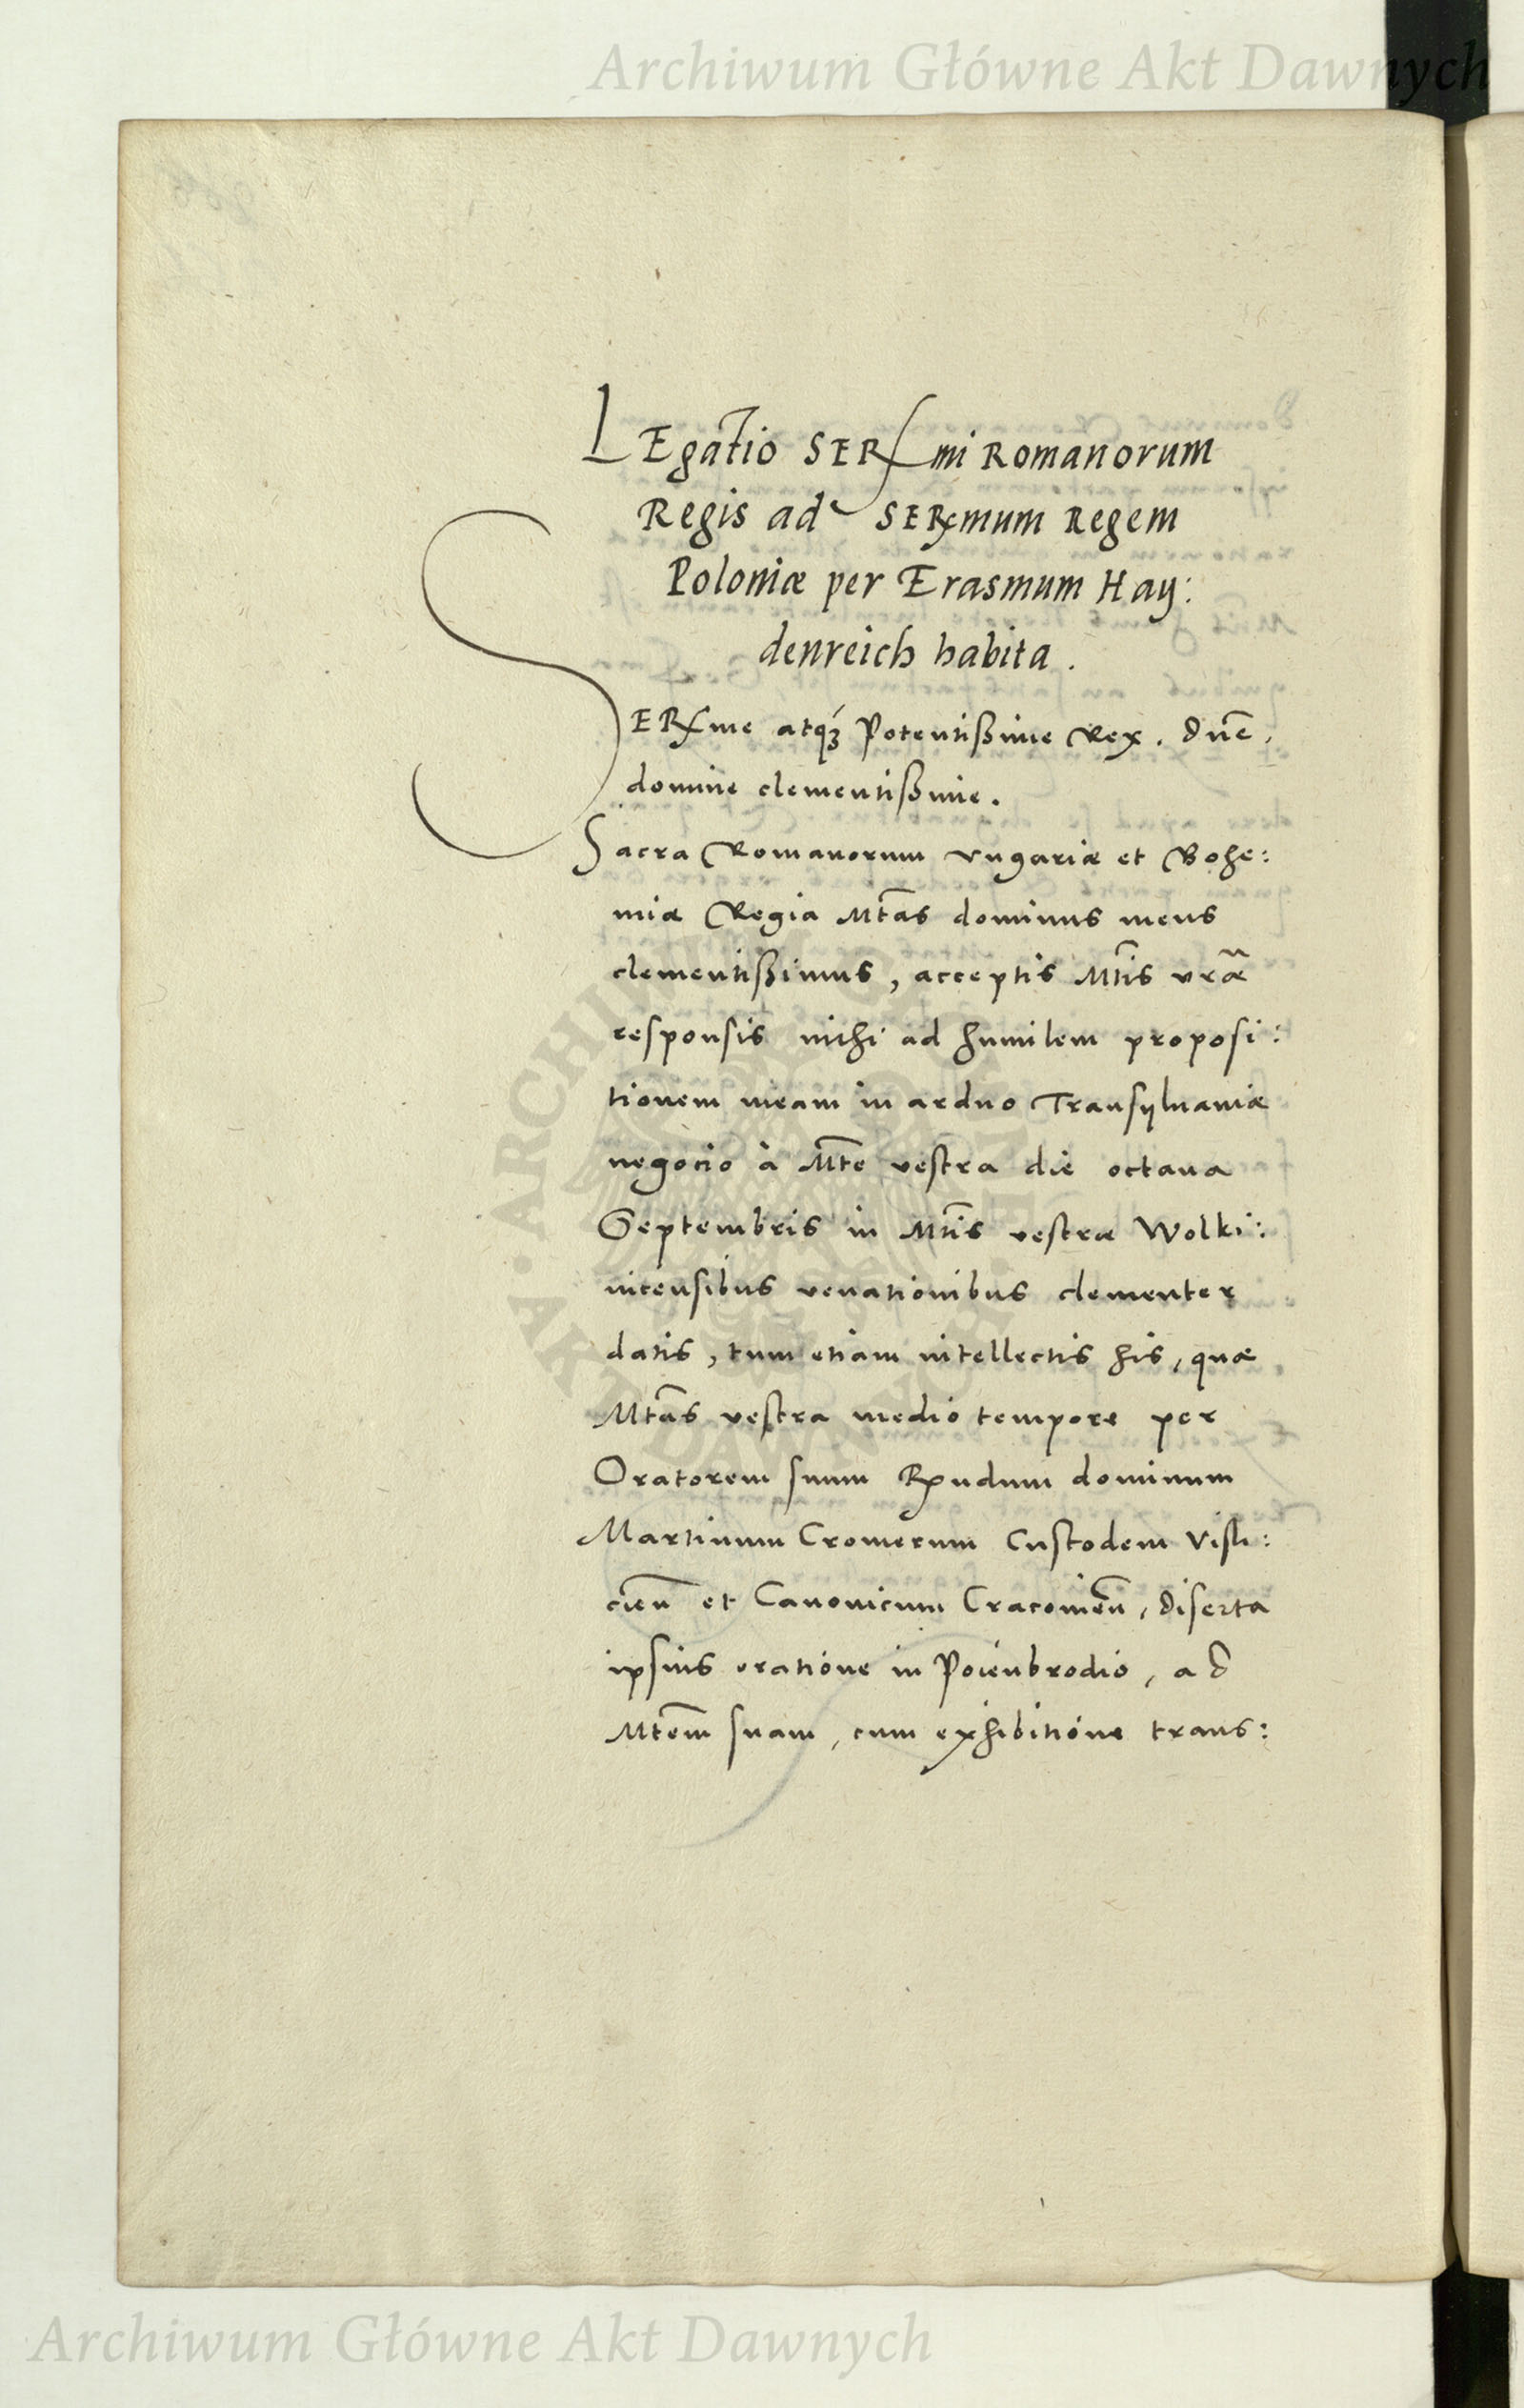 Archiwum Główne Akt Dawnych
LEgatio SERmi Romanorum
Regis ad SERmum Regem
Poloniæ per Erasmum Hay:
denreich habita.
SERme atq́ꝫ Potentißime Rex. Dñe,
domine clementißime.
Sacra Romanorum Vngariæ et Bohe:
miæ Regia Mt̃as dominus meus
clementißimus, acceptis Mt̃is vr̃æ
responsis michi ad humilem proposi:
tionem meam in arduo Transyluaniæ
negocio à Mt̃e vestra die octaua
Septembris in Mt̃is vestræ Wolki:
nicensibus venationibus clementer
datis, tum etiam intellectis his, quæ
Mt̃as vestra medio tempore per
Oratorem suum Rṇdum dominum
Martinum Cromerum Custodem Visli:
cieñ et Canonicum Cracouieñ, diserta
ipsius oratione in Poienbrodio, ad
Mt̃em suam, cum exhibitione trans:
ARCHIWUM GŁÓWNE · AKT DAWNYCH ·
Archiwum Główne Akt Dawnych